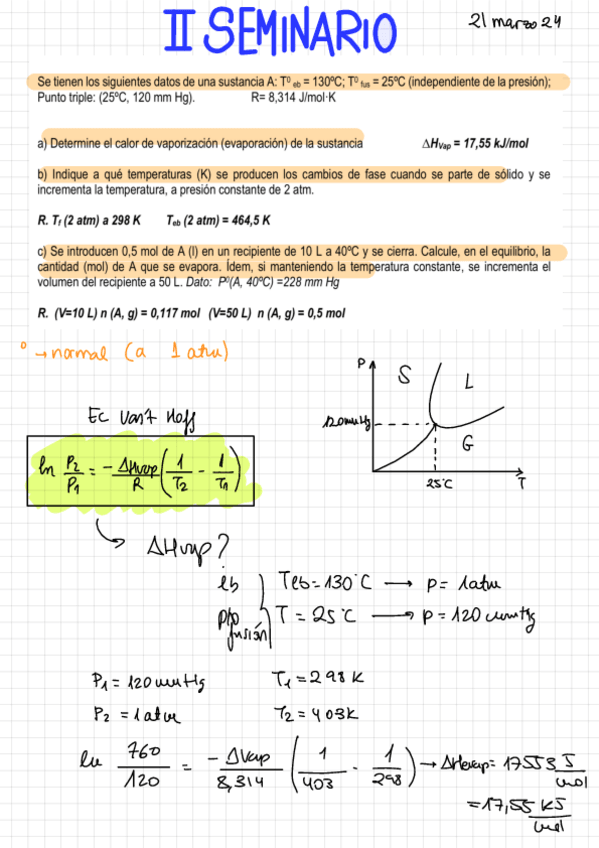 II SEMINARIO
21 marzo 24
Se tienen los siguientes datos de una sustancia A: T⁰ eb = 130ºC; T⁰ fus = 25ºC (independiente de la presión);
Punto triple: (25ºC, 120 mm Hg). R= 8,314 J/mol·K
a) Determine el calor de vaporización (evaporación) de la sustancia ΔHVap = 17,55 kJ/mol
b) Indique a qué temperaturas (K) se producen los cambios de fase cuando se parte de sólido y se
incrementa la temperatura, a presión constante de 2 atm.
R. Tf (2 atm) a 298 K Teb (2 atm) = 464,5 K
c) Se introducen 0,5 mol de A (l) en un recipiente de 10 L a 40ºC y se cierra. Calcule, en el equilibrio, la
cantidad (mol) de A que se evapora. Ídem, si manteniendo la temperatura constante, se incrementa el
volumen del recipiente a 50 L. Dato: P⁰(A, 40ºC) =228 mm Hg
R. (V=10 L) n (A, g) = 0,117 mol (V=50 L) n (A, g) = 0,5 mol
⁰ → normal (a 1 atm)
P
S
L
120mmHg
G
25ºC
T
Ec Van't Hoff
ln P2/P1 = -ΔHvap/R (1/T2 - 1/T1)
ΔHvap?
eb } Teb=130ºC → P= 1atm
fusión } T = 25ºC → P=120 mmHg
P1 = 120 mmHg T1 = 298 K
P2 = 1atm T2 = 403K
ln 760/120 = -ΔVap/8,314 (1/403 - 1/298) → ΔHvap= 17553 J/mol
=17,55 KJ/mol